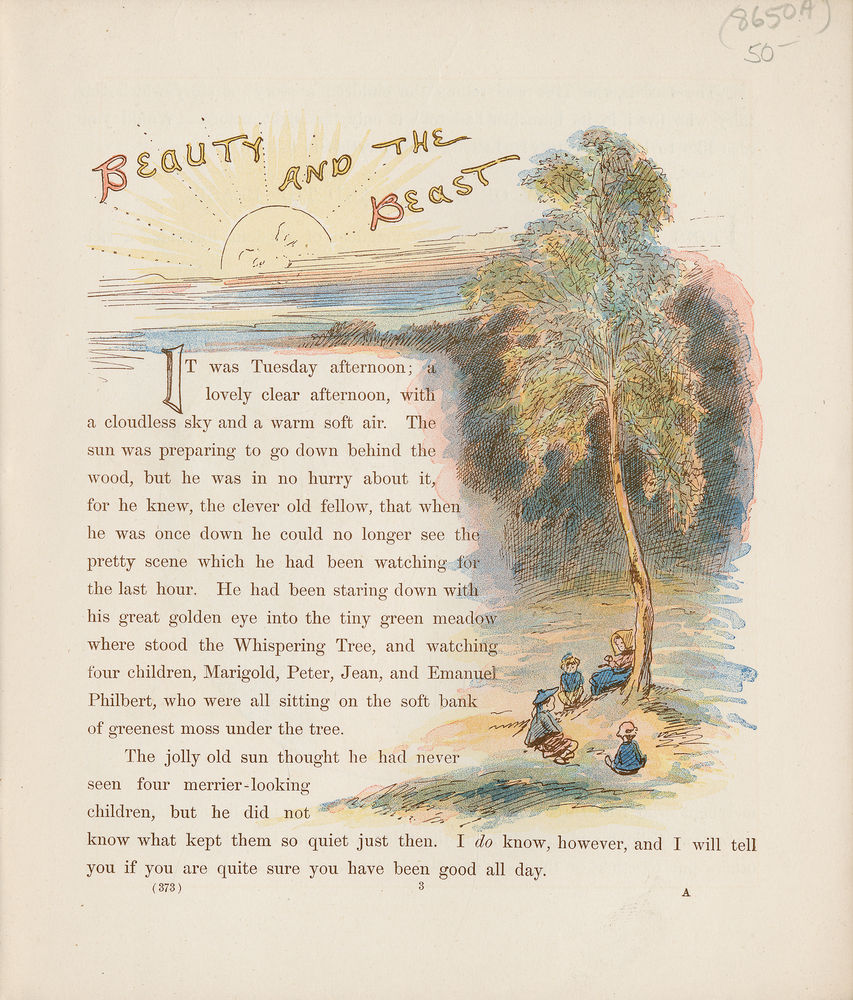 (8650A)
50-
BEAUTY AND THE
BEAST
IT was Tuesday afternoon; a
lovely clear afternoon, with
a cloudless sky and a warm soft air. The
sun was preparing to go down behind the
wood, but he was in no hurry about it,
for he knew, the clever old fellow, that when
he was once down he could no longer see the
pretty scene which he had been watching for
the last hour. He had been staring down with
his great golden eye into the tiny green meadow
where stood the Whispering Tree, and watching
four children, Marigold, Peter, Jean, and Emanuel
Philbert, who were all sitting on the soft bank
of greenest moss under the tree.
The jolly old sun thought he had never
seen four merrier-looking
children, but he did not
know what kept them so quiet just then. I do know, however, and I will tell
you if you are quite sure you have been good all day.
(373) 3 A